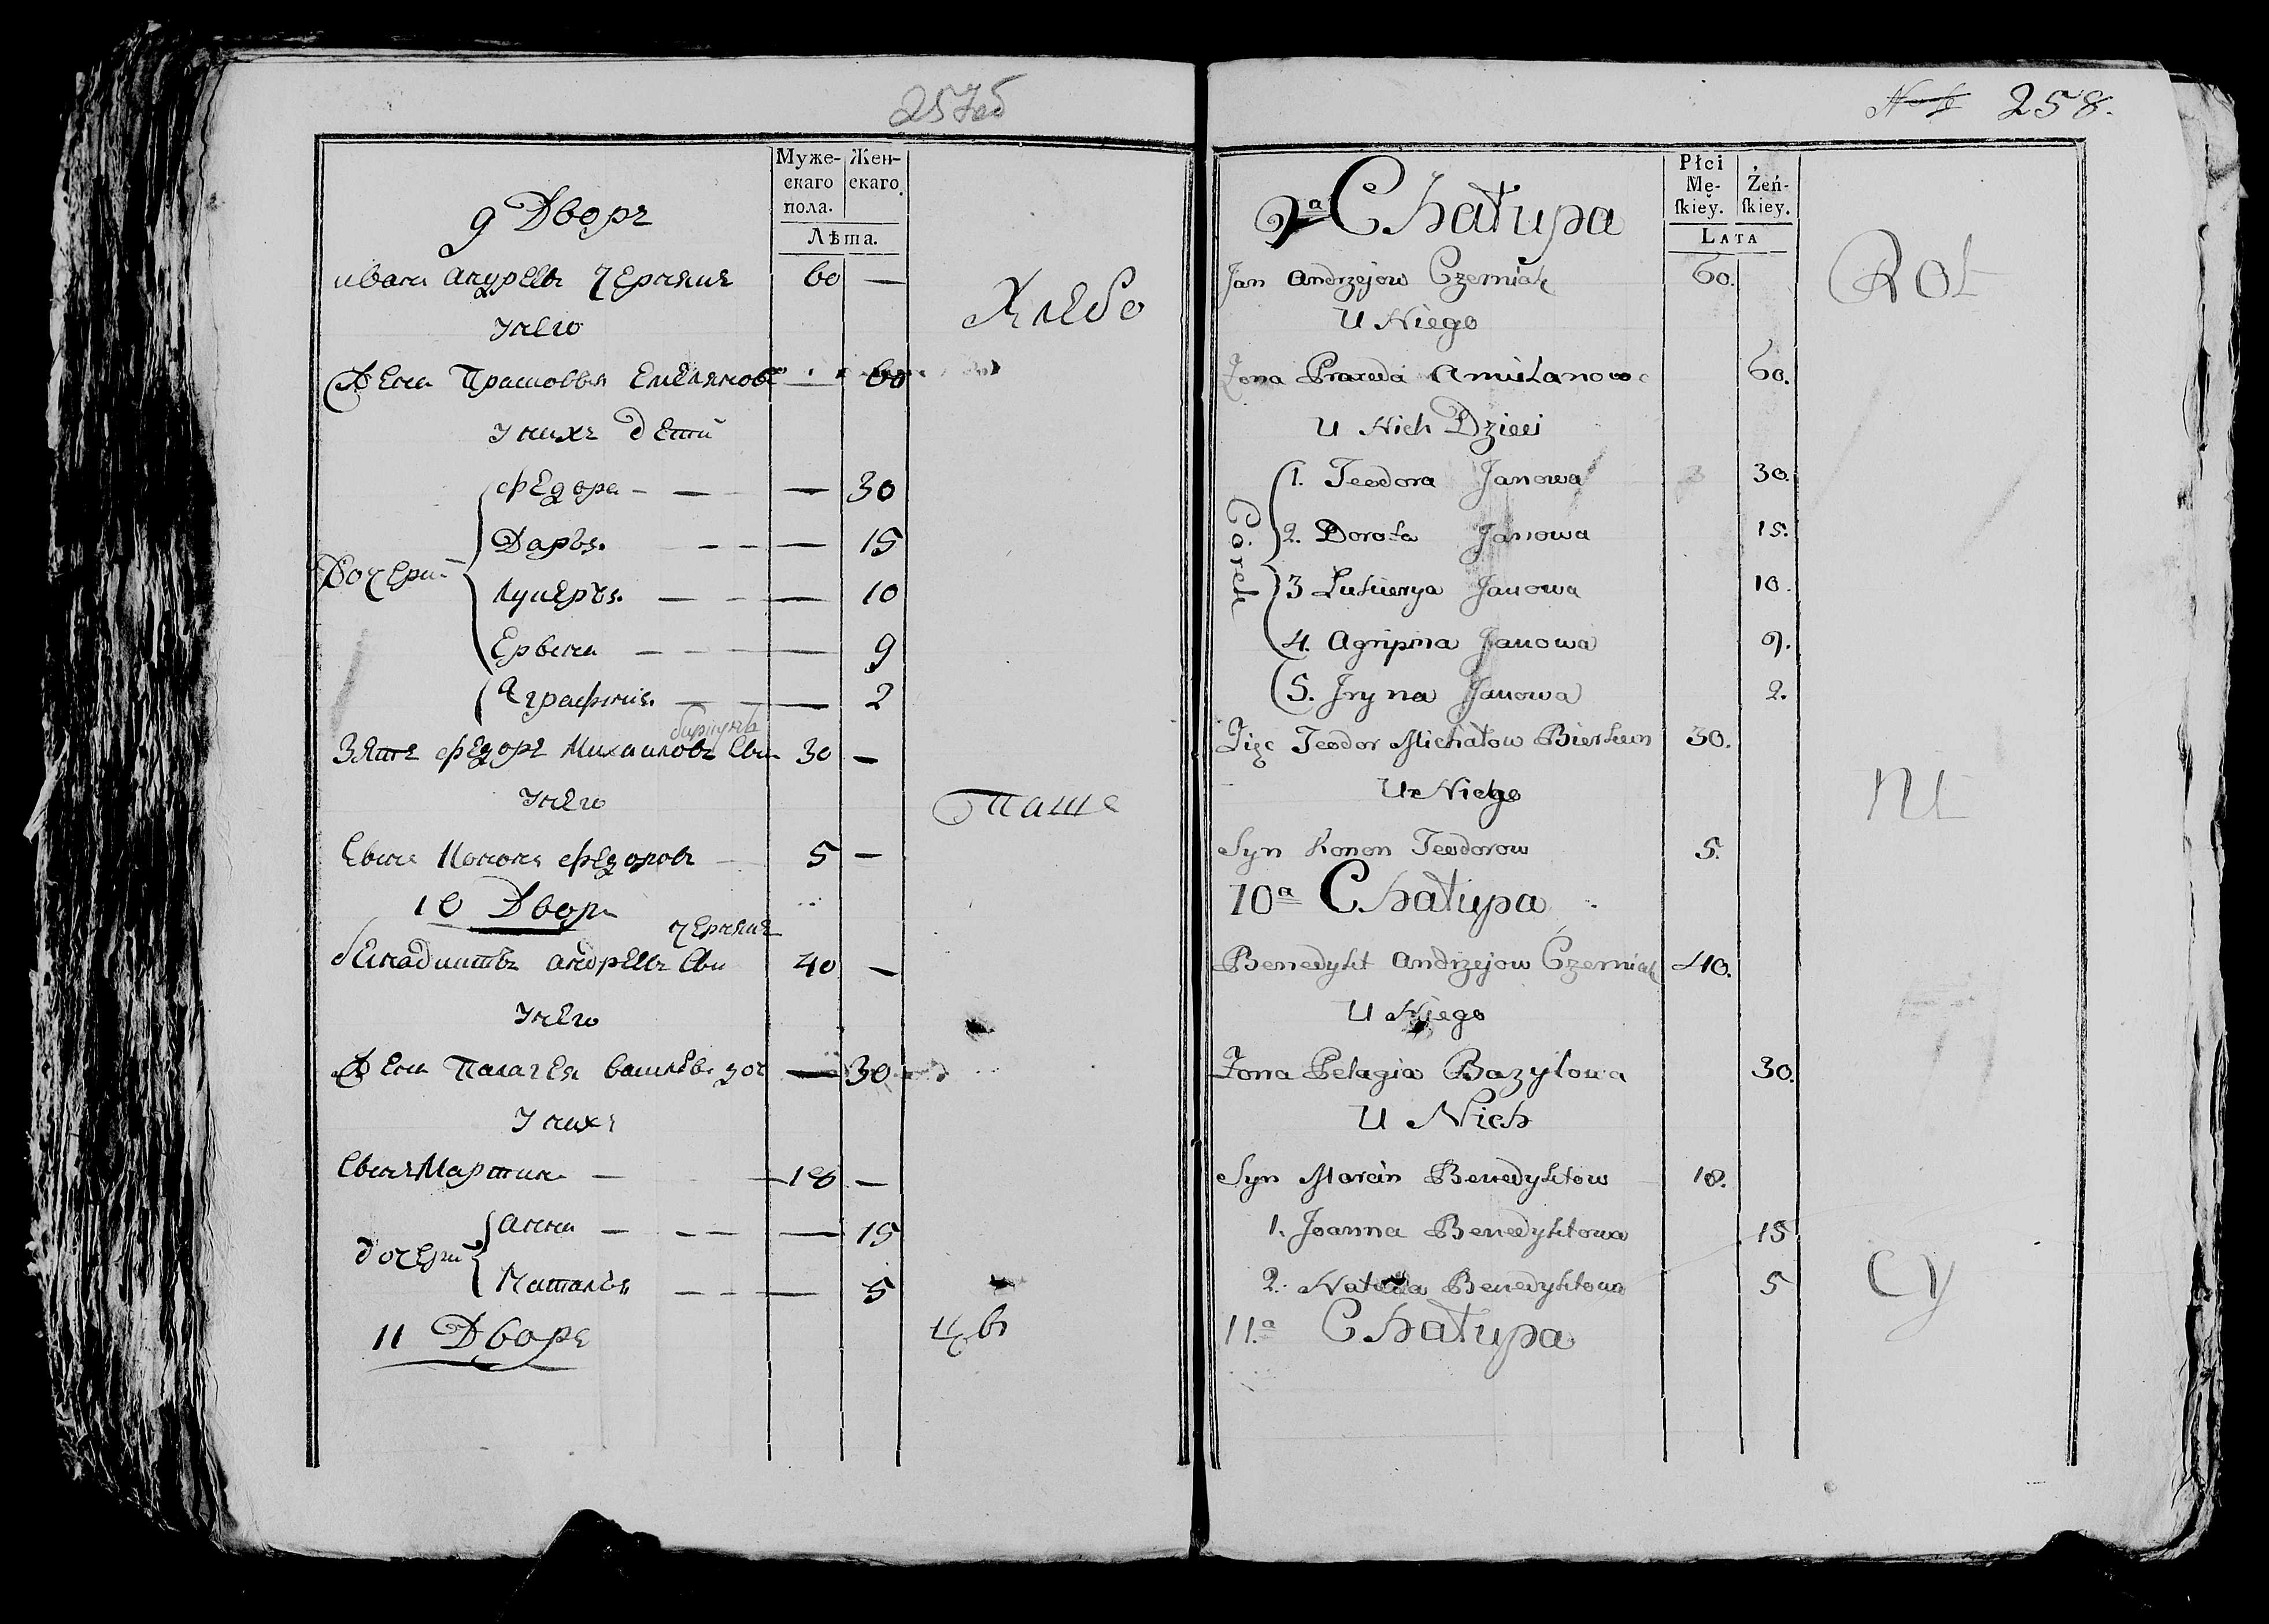 257об
Муже-
скаго
пола.
Жен-
скаго.
Лѣта.
9 Дворъ
иванъ андреевъ черняки 60 —
Хлебо
унего
Жена Прасковья Емелянов — 60
унихъ дети
Дочери
федора — — 30
Даръя — — 15
Лукеръя — — 10
— — 9
аграфина — — 2
Зять федоръ Михаиловъ Свн 30 —
унего
паше
Свнъ Кононъ федоровъ 5 —
10 Дворъ
черняки
бенадиктъ андреевъ Свн 40 —
унего
Жена Палагея доч — 30
унихъ
Свнъ Мартин — 18 —
дочери
анна — — 15
Наталья — — 5
11 Дворъ
цы
258.
Płci
Mę-
ſkiey.
Żeń-
ſkiey.
Lata
9a Chałupa
Jan Andrzejow Czerniak 60.
Rol
U Niego
Żona Praxeda Amilanowa 60.
U Nich Dzieci
Córek
1. Teodora Janowa 30.
2. Dorota Janowa 15.
3 Lukierya Janowa 10.
4. Agripina Janowa 9.
5. Iryna Janowa 2.
Zięc Teodor Michałow 30.
U Niego
ni
Syn Konon Teodorow 5.
10a Chałupa
Benedykt Andrzejow Czerniak 40.
U Niego
Żona Pelagia Bazylowa 30.
U Nich
Syn Marcin Benedyktow 18.
1. Joanna Benedyktowa 15
2. Natalia Benedyktowa 5
cy
11.a Chałupa